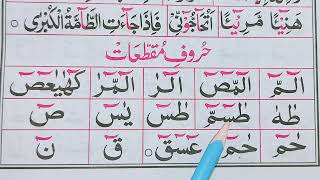 هَنِيْٓئًا مَّرِيْٓئًا اَتُحَآجُّوْٓنِّيْ فَاِذَا جَآءَتِ الطَّآمَّةُ الْكُبْرٰى
حروف مقطعات
الٓمّٓ الٓمّٓصٓ الٓرٰ الٓمّٓرٰ كٓهٰيٰعٓصٓ
طٰهٰ طٰسٓمّٓ طٰسٓ يٰسٓ صٓ نٓ
حٰمٓ حٰمٓ عٓسٓقٓ قٓ نٓ